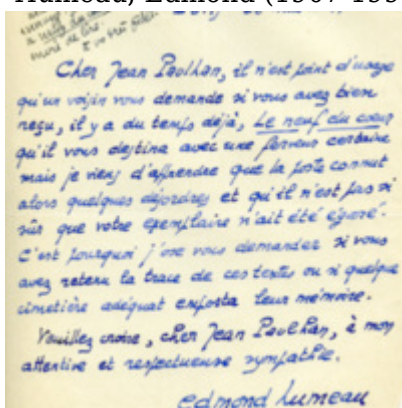 Humeau, Edmond (1907-199
Cher Jean Paulhan, il n'est point d'usage
qu'un voisin vous demande si vous avez bien
reçu, il y a du temps déjà, Le neuf du cœur
qu'il vous destina avec une ferveur certaine
mais je viens d'apprendre que la poste connut
alors quelques désordres et qu'il n'est pas si
sûr que votre exemplaire n'ait été égaré.
C'est pourquoi j'ose vous demander si vous
avez retenu la trace de ces textes ou si quelque
cimetière adéquat emporta leur mémoire.
Veuillez croire, cher Jean Paulhan, à mon
attentive et respectueuse sympathie.
edmond humeau